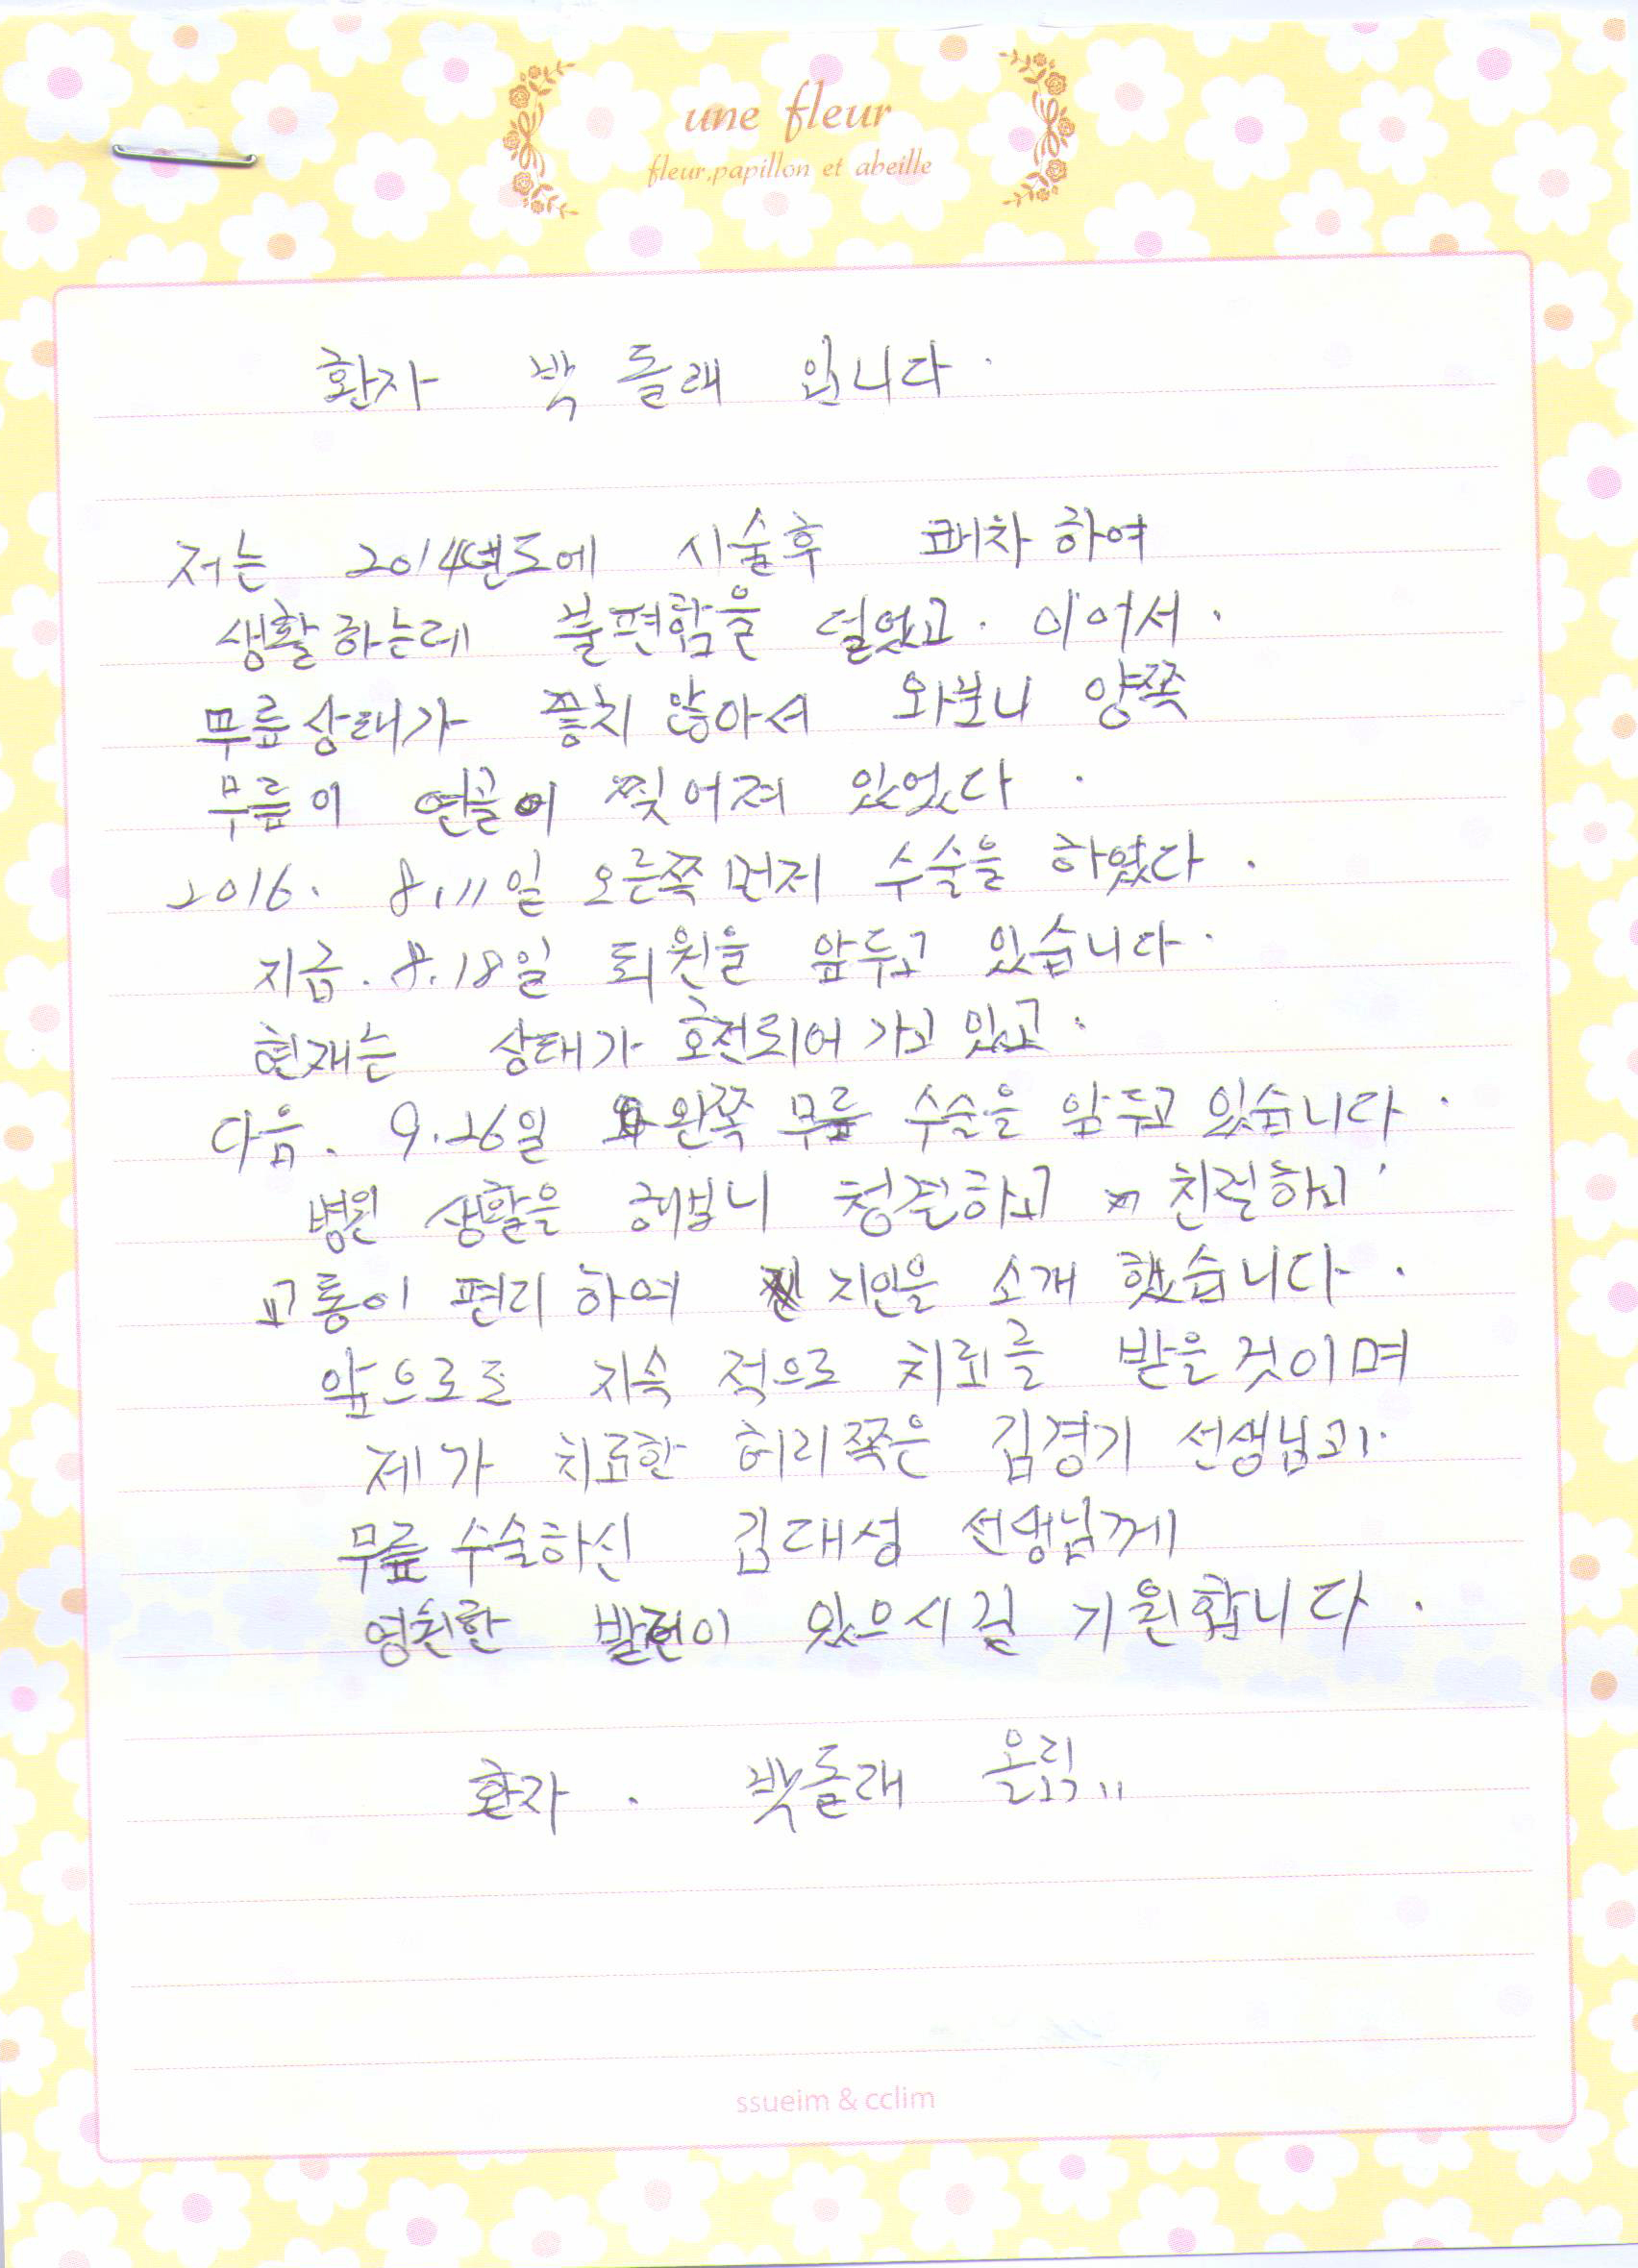 une fleur
fleur,papillon et abeille
환자 박돌래 입니다.
저는 2014년도에 시술후 쾌차하여
생활하는데 불편함을 덜었고. 이어서.
무릎상태가 좋치 않아서 와보니 양쪽
무릎이 연골이 찢어져 있었다.
2016. 8.11일 오른쪽먼저 수술을 하였다.
지금. 8.18일 퇴원을 앞두고 있습니다.
현재는 상태가 호전되어 가고 있고.
다음. 9.26일 왼쪽 무릎 수술을 앞두고 있습니다.
병원 생활을 해보니 청결하고 친절하고
교통이 편리하여 지인을 소개 했습니다.
앞으로도 지속적으로 치료를 받을것이며
제가 치료한 허리쪽은 김경기 선생님과.
무릎 수술하신 김대성 선생님께
영원한 발전이 있으시길 기원합니다.
환자. 박돌래 올림,,
ssueim & cclim